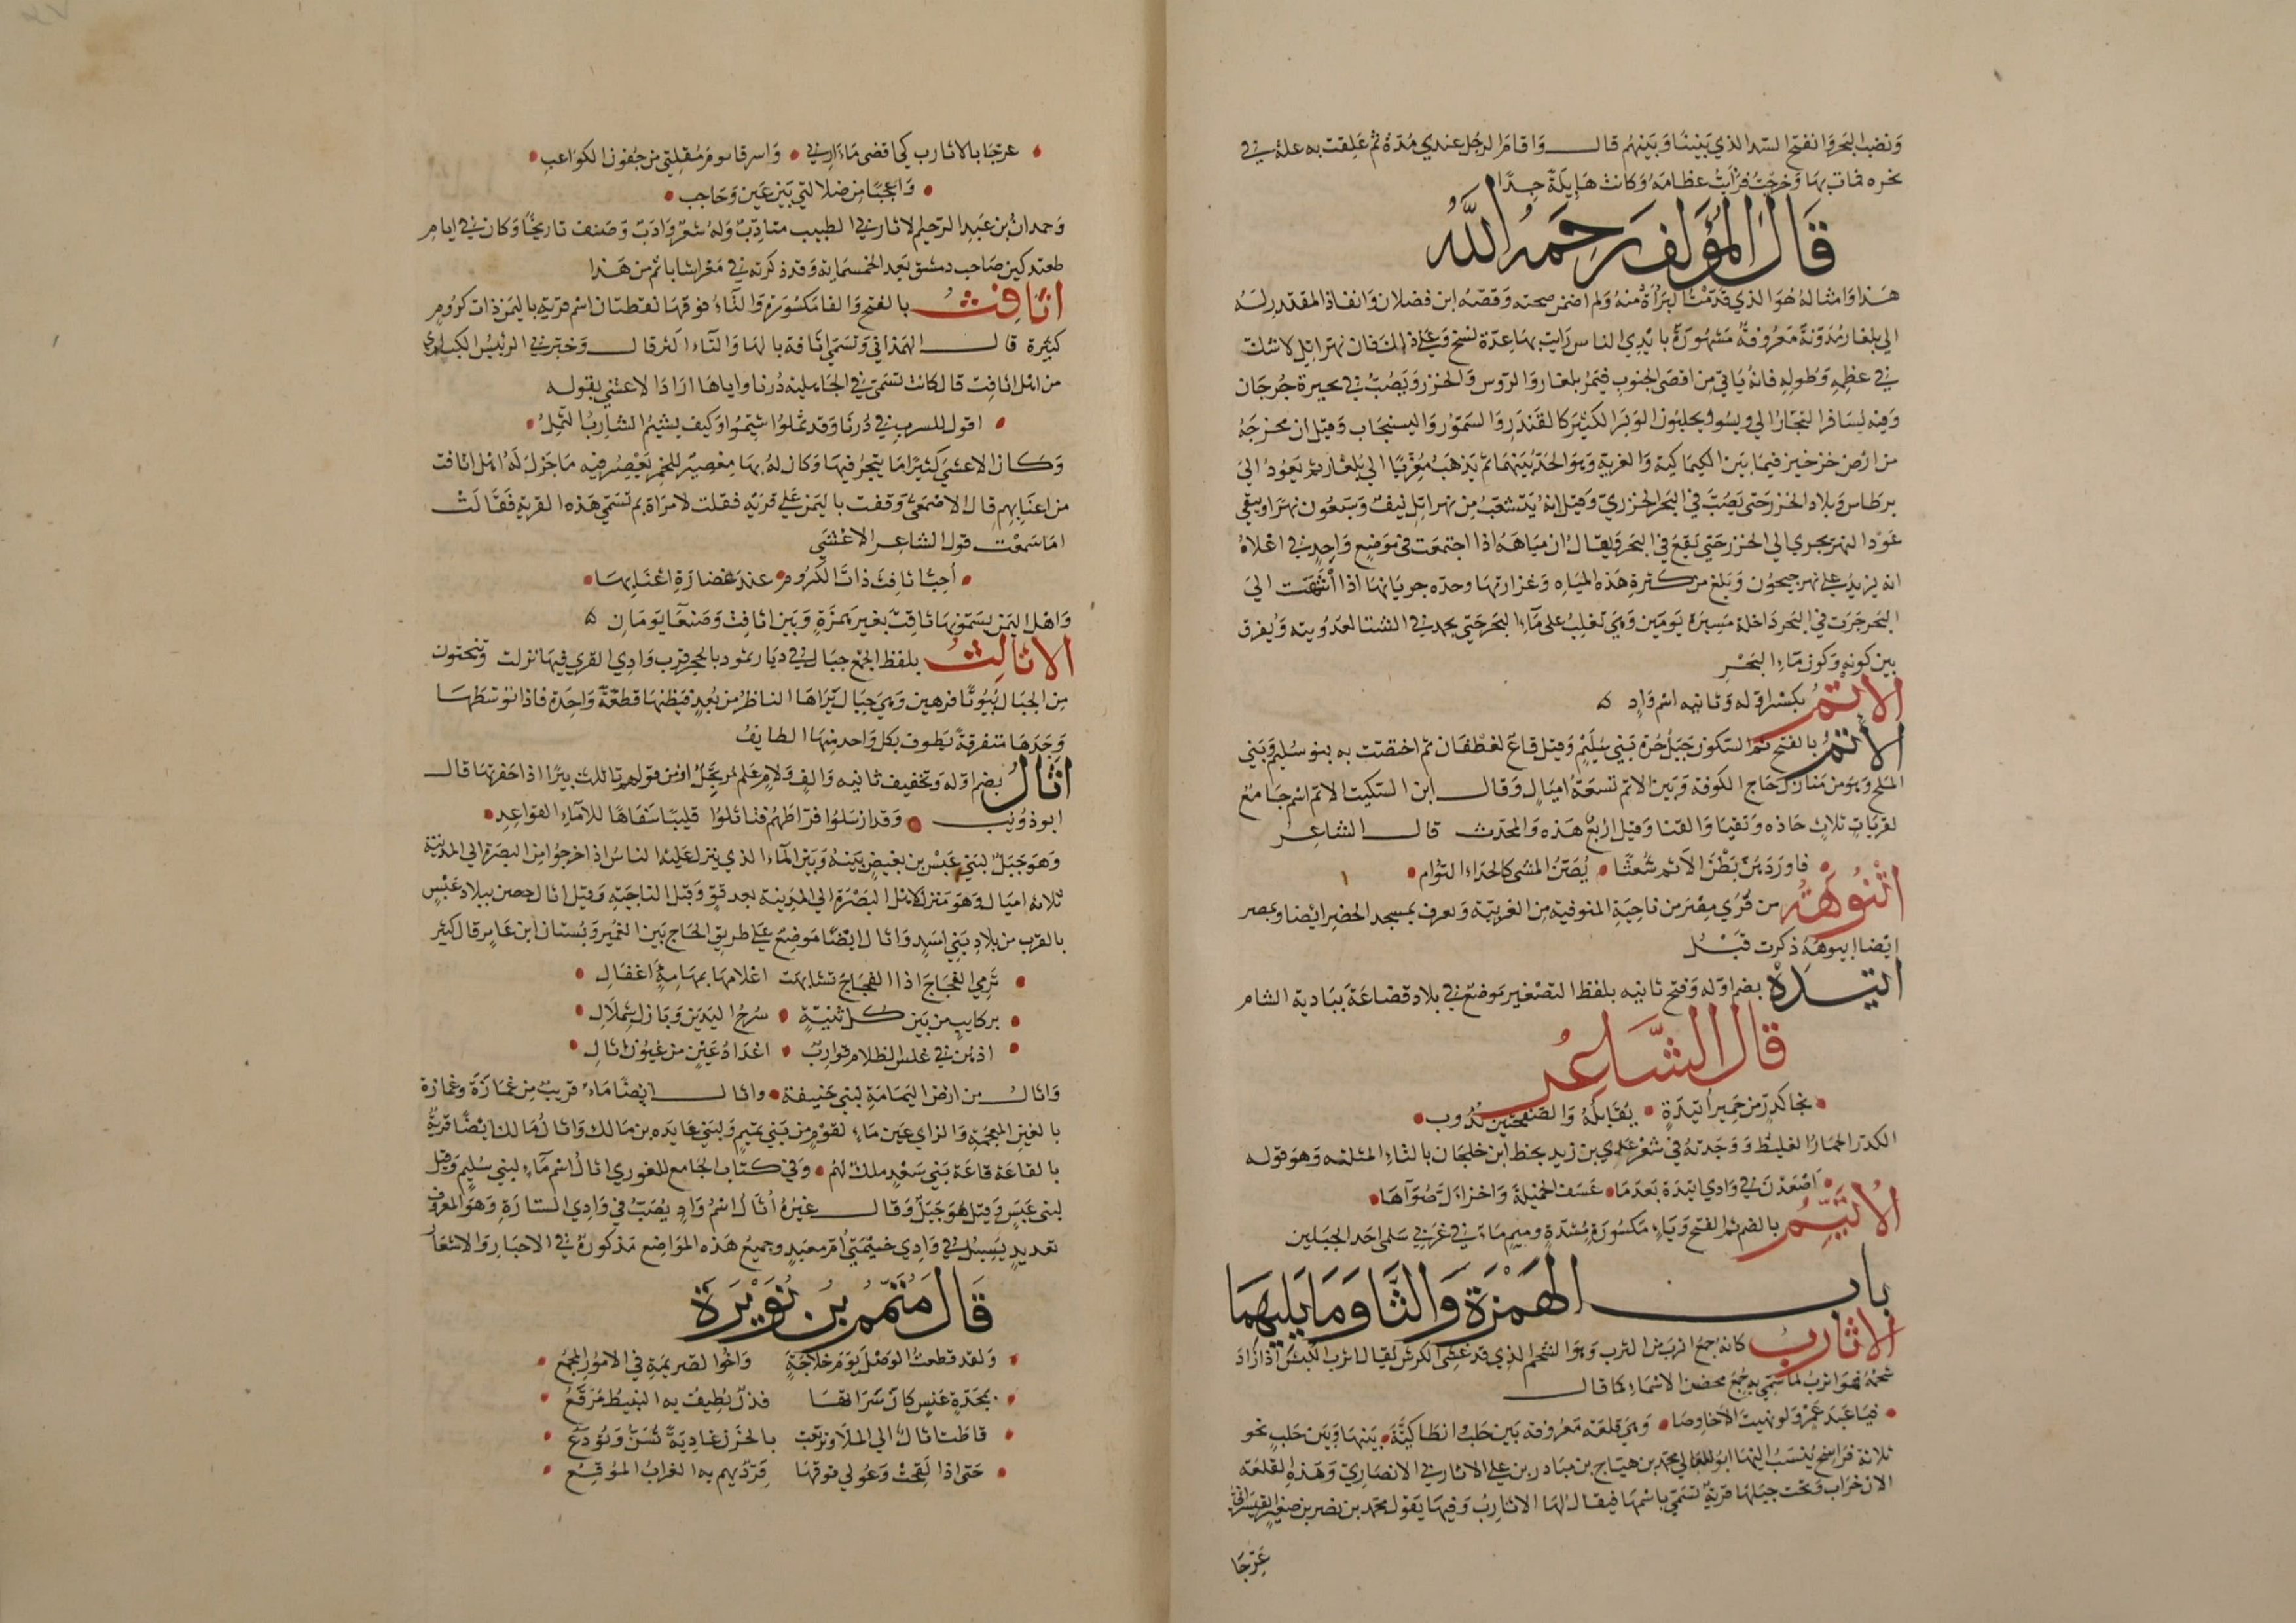 وَنضب البَحر وَانفتح السّد الذي بَيننا وَبَينهم قالـــ وَاقام الرجل عندي مُدّة ثم عَلِقت به علة في
نحره فمات بها وَخرجتُ فرأيتُ عظامَهُ وَكانت هَايِلَةً جِدًّا
قَالَ المُؤَلفُ رَحِمَهُ اللَّهُ
هَذا وَامثالهُ هُوَ الذي قَدّمْتُ البَرَاءَةَ منهُ وَلم اضمن صحته وَقصّة ابن فضلان وَانفاذ المقتدر لهُ
الى بلغار مُدَوّنةٌ مَعْرُوفةٌ مَشهُورَةٌ بايْدِي الناس رَايت بهَا عدّة نسخ وَعَلى ذلك فان نهر اتل لا شك
في عظمِهِ وَطُولِهِ فانهُ يَاتي مِن اقصَى الجنوب فيَمرّ ببلغار وَالروس وَالخزر وَيَصُبُّ في بحيرة جُرجَان
وَفيه يُسَافر التجّار الى ويسُو وَيجلبُون الوَبَر الكثيرَ كالقندر وَالسَمّوُر وَالسنجَاب وَقيل ان مخرجَهُ
من ارْض خزخيز فيمَا بَين الكيماكية وَالغزية وَهوَ الحَدّ بَينهمَا ثم يَذهَبُ مُغرّبًا الى بُلغار ثم يَعوُدُ الىَ
برطاس وَبلاد الخزر حَتى يَصُبّ في البَحر الخزريّ وَقيل انهُ يَتشعّبُ مِن نهر اتل نيفٌ وَسَبْعُون نهرًا وَيبقى
عَمُود النهر يجري الى الخزر حَتى يَقعَ في البَحر وَيقال ان مِيَاهَهُ اذا اجتمعَت في موَضِع وَاحِدٍ في اعْلاهُ
انه يزيدُ عَلى نهر جيحوُن وَبَلغ من كثرة هَذه المياه وَغزارتها وحدّة جريانها اذا انتَهَت الىَ
البَحر جَرَت في البَحر دَاخلة مَسِيرَة يَومَين وَهيَ تغلِبُ على مَاءِ البَحر حَتى يجمد في الشتا لعذوبته وَيُفرق
بين لونِه وَلون مَاءِ البَحْرِ
الإِتِمُ بكسْر اوّله وَثانيه اسْم وَادٍ ه
الأتْمُ بالفتح ثم السكون جَبَلُ حَرّة بَني سُلَيْم وَقيل قاعٌ لغطَفان ثم اختصّت به بنو سُليم وَبَني
المَلحِ وَهوَ من مَنازل حَاج الكوفة وَبَين الاتم تسعَةُ اميَالٍ وَقالـــ ابن السكيت الاتم اسْم جَامعٌ
لقرياتٍ ثلاثٍ حَاذه وَنقيا وَالقنا وَقيل اربعٌ هَذه وَالمحدَث قالـــ الشاعِر
فاورَدَهُنّ بَطنَ الأتم شُعْثًا يُصَنّ المشىَ كالحِدَاءِ التوُام
اتْنُوْهَةُ من قُرَى مِصْرَ من نَاحِيَة المنوفيّة مِن الغربيّة وَيعرف بمسجد الخضِر ايْضا وبمصر
ايْضا ابيوهَةُ ذكرت قبْــل
اتيــدَةُ بضم اوّله وَفتح ثانيه بلفظ التصْغير مَوضعٌ في بلاد قضاعَة ببَادية الشام
قالَ الشَّاعِرُ
نجا كدِرٌ من حَمِيرِ اُتيْدَةٍ يُقابلُهُ وَالصَفحتَين نُدُوب
الكدرُ الحمَار الغليظ وَوَجَدتهُ في شعْر عَدي بن زيد بخط ابن خلجان بالثاءِ المثلثه وَهوَ قوله
اَصْعَدْنَ في وَادي اثيدَة بَعْدَمَا عَسَف الخميلة وَاخزألّ صُوَاهَا
الأُتَيِّمُ بالضم ثم الفتح وَيَاءٍ مكسُورَةٍ مُشدّةٍ وميم مَاءٌ في غربي سَلمى احَد الجبَلين
بابـــ الهَمْزَة وَالثَّا وَمَا يَليهِمَا
الاثاربُ كانهُ جمعُ اثرب من الثرب وَهوَ الشحم الذي قد غشَّى الكرش يُقال اثرب الكبش اذا زادَ
شحمُهُ فهوَ اثربُ لما سُمّي به جُمِعَ محضَ الاسْمَاءِ كما قالـــ
فيَا عَبدَ عَمْروٍ لو نهيتَ الأحَاوِصَا وَهيَ قلعَة مَعْرُوفة بَين حَلب وَانطاكيّة بَينهَا وَبَين حَلب نحو
ثلاثة فَرَاسخ يُنسَبُ اليهَا ابوُ المعَالي محمّد بن هيّاج بن مبادر بن علي الاثاربي الانصَاريّ وَهَذهِ القلعَة
الان خرَاب وَتحت جبَلهَا قريَةٌ تُسَمّى باسْمهَا فيقال لهَا الاثارِبُ وَفيهَا يَقول محمّد بن نصر بن صغير القيسَراني
عَرّجَا
عرّجَا بالاثارب كي اقضىَ مَآرِبي وَاسرقا نومَ مُقلتي من جُفون الكوَاعِبِ
وَاعجَبا مِن ضلالتي بَين عَين وَحَاجب
وَحمدان بن عَبد الرّحيم الاثاربي الطبيب متادّبٌ وَلهُ شعْرٌ وَادَبٌ وَصَنف تاريخًا وَكان في ايام
طغتدكين صَاحب دمشق بَعد الخمسمَاية وَقد ذكرته في مَعْراثا باتم من هَذا
اثَافِتُ بالفتح وَالفا مَكسُورَة وَالتّاءُ فوقهَا نقطتان اسْم قريَة باليَمن ذات كرُومٍ
كثيرة قالـــ الهَمْذاني وَتسَمى اثافة بالهَا وَالتاء اكثر قالـــ وَخبرني الرئيس الكباري
من اهْل اثافِت قال كانت تسَمى في الجَاهِلية دُرنا وَاياهَا ارَادَ الاعشى بقولـه
اقول للسرب في دُرنَا وَقد ثملُوا شيّمُوا وَكيف يشيمُ الشارِبُ الثَمِلُ
وَكــان الاعْشى كثيرًا مَا يتجرُ فيهَا وَكان لهُ بهَا مِعْصَرٌ للخمر يَعْصِرُ فيه مَا جَزلَ لهُ اهْل اثافت
من اعنَابهم قال الاصْمَعيّ وَقفت باليَمن عَلى قريَة فقلت لامرَاة بم تُسَمى هَذه القريَة فَقالَتْ
امَا سَمعْت قول الشاعر الاعْشَى
أُحِبُّ اثافِتَ ذاتَ الكُرُوم عندَ عُصَارَةِ اعْنَابِهَا
وَاهْل اليَمن يسَمّونهَا ثافت بغير هَمزَةٍ وَبَين اثافت وَصَنعَا يَومَانِ ه
الاثالِثُ بلفظ الجمع جبَال في ديار ثمود بالحجر قرب وَادِي القرى فيهَا نزلت وتنحتون
مِن الجبَال بُيُوتًا فرهين وَهيَ جبَال يَرَاهَا الناظرُ من بُعدٍ فيَظنهَا قطعَةً وَاحِدَة فاذا توَسّطَهَا
وَجَدَهَا متفرقةً يَطوف بكل وَاحد منهَا الطايفُ
اثَالٌ بضم اوّله وَتخفيف ثانيه وَالفٍ وَلامٍ عَلم مُرتَجَلٌ اوْ من قولهم تاثلت بيرًا اذا حَفرتهَا قالـــ
ابو ذؤيبـــ وَقد ارْسَلوُا فرّاطهُم فتاثلوا قليبًا سَفاهًا للامَاءِ القوَاعِدِ
وَهوَ جَبَلٌ لبَني عَبْس بن بغيض بَينهُ وَبَين المَاءِ الذي يَنزل عَليهِ الناسُ اذا خرجوُا مِن البصرَة الى المدينة
ثلاثة اميَال وَهوَ مَنزلٌ لاهْل البَصْرَة الى المدِينة بعد قوّ وَقبل الناجية وَقيل اثال حصن ببلاد عَبْسٍ
بالقرب من بلاد بَني اَسَدٍ وَاثال ايْضًا مَوضِعٌ على طريق الحَاج بَين الغمير وَبُستان ابن عَامر قال كثير
تَرمي الفجَاج اذا الفجَاجُ تشابَهَت اعْلامهَا بمهَامِهٍ اَغفَالِ
بركايبٍ من بَين كــل ثنيّةٍ سُرح اليَدَين وَبَازل شِملالِ
اذ هُنّ في غلس الظلام قوارِبٌ اعْدَادُ عَينٍ من عُيُون اثالِ
وَاثالـــ من ارْض اليَمَامَةِ لبني حَنيفة وَاثالـــ ايْضًا مَاءٌ قريبٌ مِن غمَازَة وغمَازة
بالغين المعجَمة وَالزاي عَين مَاءٍ لقوْمٍ من بَني تميم وَلبَني عَايذه بن مَالك وَاثال لمَالك ايْضًا قريَةٌ
بالقاعَة قاعَة بَني سَعْدٍ ملك لهُم وَفي كتاب الجامع للغوري اثالُ اسْم مَاءٍ لبني سُليم وَقيل
لبني عَبسٍ وَقيل هوَ جَبَلٌ وَقالـــ غيْرهُ اُثَالٌ اسْمُ وَادٍ يَصُبّ في وَادي الستارَةِ وَهوَ المعروف
بقديدٍ يَسيلُ في وَادِي خيْمَتي امّ مَعبَدٍ وجميعُ هَذه الموَاضِع مَذكورَةٌ في الاخبَار وَالاشعَار
قَالَ مُتَمّمُ بنُ نُوَيْرَةَ
وَلقد قطعتُ الوَصْلَ يَوْمَ خلاجَةٍ وَاخوُا الصّريمَةِ في الامُوُر المجمعُ
بمجَدّةٍ عَنسٍ كانّ سَرَاتهَا فدنٌ يُطِيفُ به النبيطُ مُرَفّعُ
قاظت اثال الى الملا وَتربّعَت بالحزن عَادِيَةً تُسَنُّ وَتوُدَعُ
حَتى اذا لَقِحَتْ وَعُوُلي فوقهَا قَرِدٌ يهم به الغرابُ المُوُقِــعُ